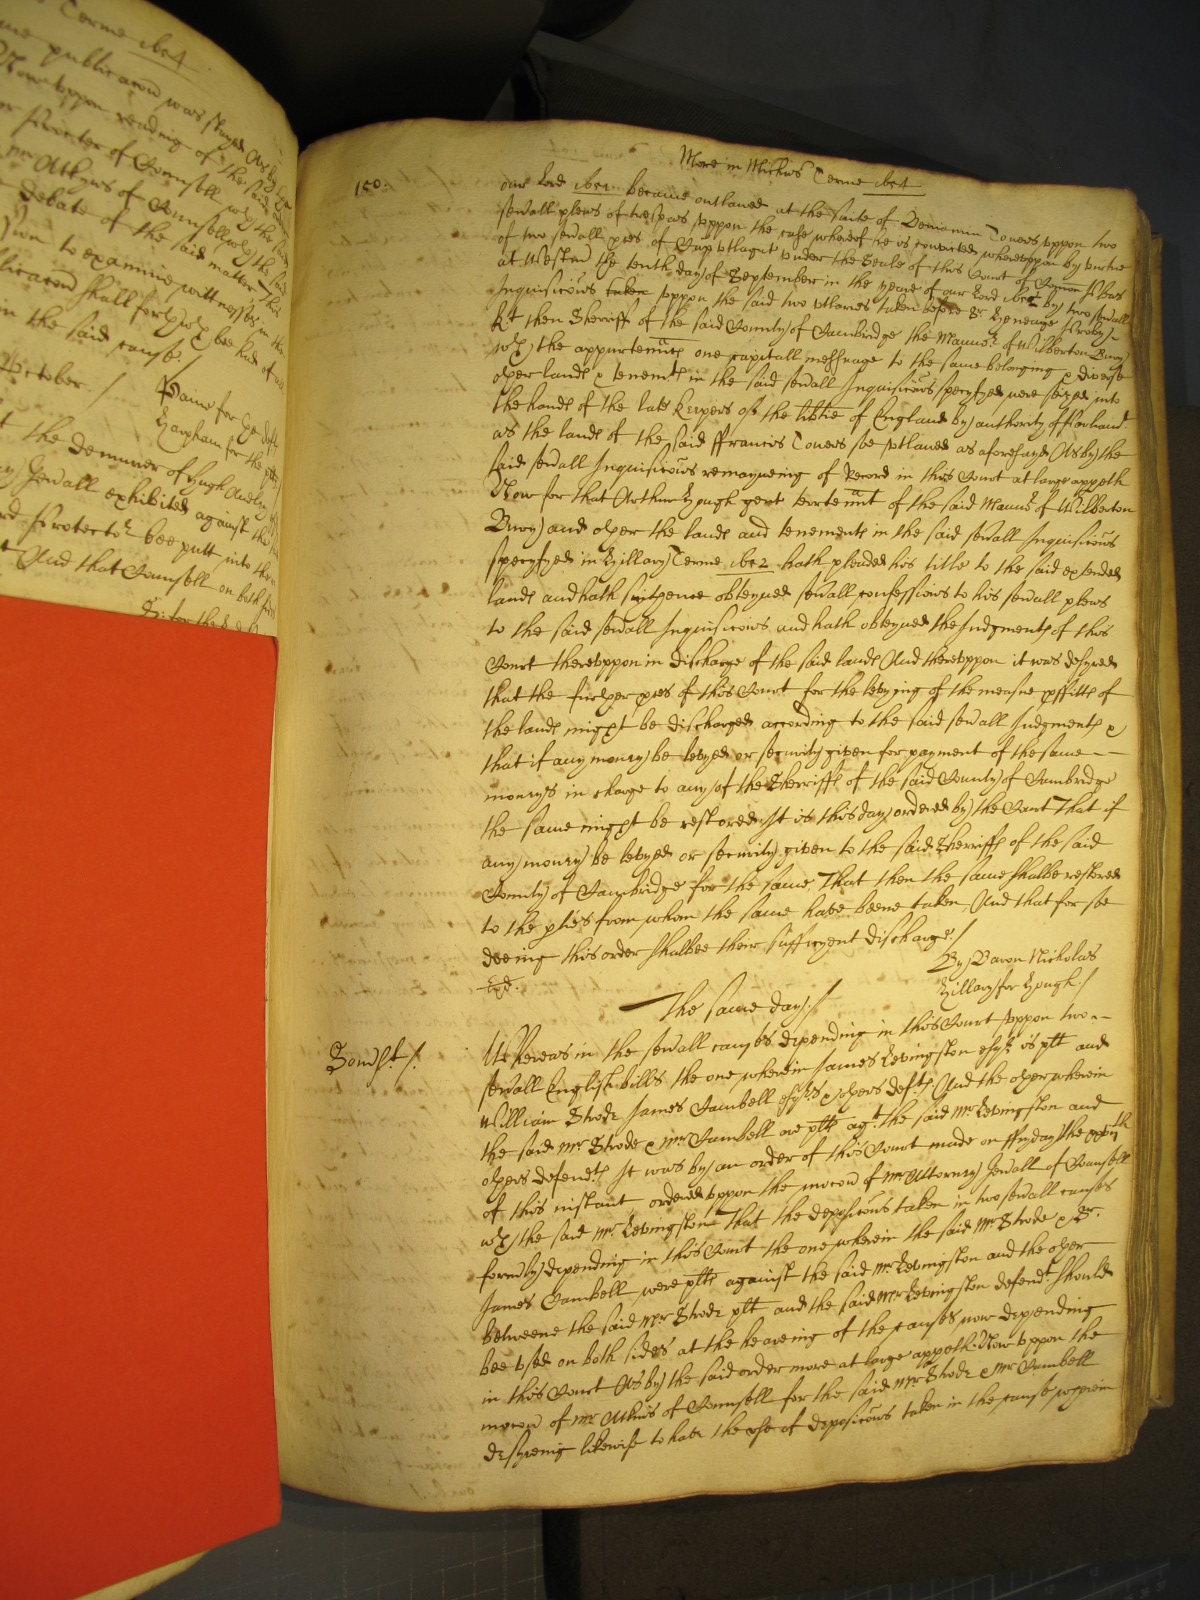 Terme 1654
publicacon was stayed As by
Now uppon reading of the said
of Counsell wth the
mr Atkyns of Counsell wth the said
debate of the said matter This
to examine witnesses in the
publicacon shall forthwth bee had of
in the said cause /
October /
Payne for the deft
Hareham for the plt
the demurrer of Hugh Audley
exhibited against the
Protector bee putt into the
And that Counsell on both sides
More in Michas Terme 1654
150:
our Lord 1651 became outlawed at the suite of Beniamin Tovers uppon two
sevall plees of trespas uppon the case whereof he is convicted whereuppon by vertue
of two sevall pces of Cap utlagat under the Seale of this Court of Comon Pleas
at Westmr the tenth day of September in the yeare of our Lord 1651 by two sevall
Inquisicons taken uppon the said two utlaries taken before Sr
Kt then Sherriff of the said County of Cambridge the Mannor of Wilberton Bury
wth the appurtennces one capitall messuage to the same belonging & diverse
other lands & tenemts in the said sevall Inquisicons specyfyed were seized into
the hands of the late Keepers of the libtie of England by authority of Parliamt
as the lands of the said ffrancis Tovers soe utlawed as aforesayd As by the
said sevall Inquisicons remayneing of Record in this Court at large appeth
Now for that Arthur Hough gent tertennt of the said Mannor of Wilberton
Bury and other the lands and tenements in the said sevall Inquisicons
specyfyed in Hillary Terme 1652 hath pleaded his title to the said extended
lands and hath obteyned sevall confessions to his sevall plees
to the said sevall Inquisicons and hath obteyned the Judgmts of this
Court thereuppon in discharge of the said lands And thereuppon it was desyred
that the further pces of this Court for the levying of the meane pffitts of
the lands might be discharged according to the said sevall Judgmts &
that if any money be levyed or security given for payment of the same
moneys in charge to any of the Sherriffs of the said County of Cambridge
the same might be restored It is this day ordered by the Court That if
any money be levyed or security given to the said Sherriffs of the said
County of Cambridge for the same That then the same shalbe restored
to the pties from whom the same have beene taken And that for soe
doeing this order shalbee their suffycyent discharge /
By Baron Nicholas
Hillary for Hough /
The same day /
Somst /
Whereas in the sevall causes depending in this Court uppon two
sevall English bills the one wherein James Levingston esqr is plt and
William Strode James Cambell esqrs & others defts And the other wherein
the said mr Strode & mr Cambell are plts agt the said mr Levingston and
others defendts It was by an order of this Court made on ffryday the
of this instant ordered uppon the mocon of mr Attorney Genall of Counsell
wth the said mr Levingston That the deposicons taken in two sevall causes
formly depending in this Court the one wherein the said mr Strode & Sr
James Cambell were plts against the said mr Levingston and the other
betweene the said mr Strode plt and the said mr Levingston defendt should
bee used on both sides at the heareing of the causes now depending
in this Court As by the said order more at large appeth Now uppon the
mocon of mr Atkins of Counsell for the said mr Strode & mr Cambell
desyreing likewise to have the use of deposicons taken in the cause wherein